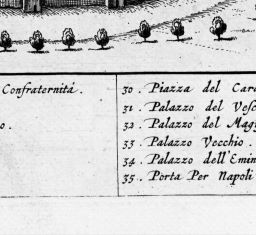 Confraternitá.
o.
30. Piazza del Car
31. Palazzo del Vesc
32. Palazzo del Mag
33. Palazzo Vecchio.
34. Palazzo dell'Emin
35. Porta Per Napoli